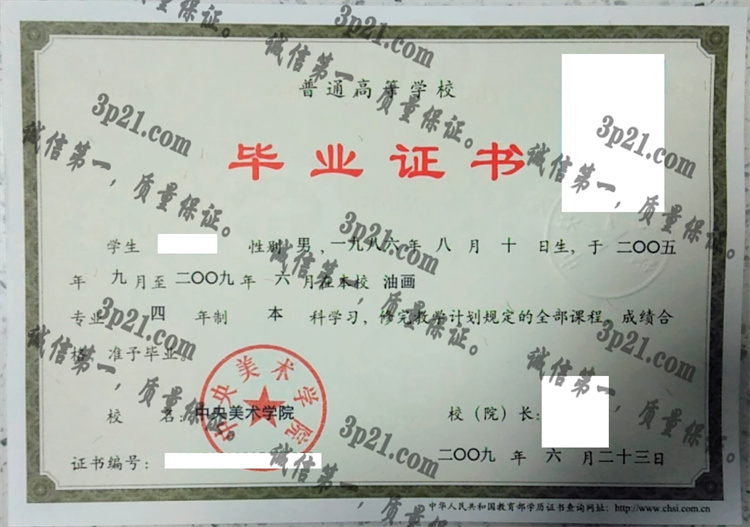 普通高等学校
毕业证书
学生 性别 男，一九八六年 八 月 十 日生，于 二〇〇五
年 九 月至 二〇〇九 年 六 月在本校 油画
专业 四 年制 本 科学习，修完教学计划规定的全部课程，成绩合
格，准予毕业。
校 名：中央美术学院
校（院）长：
证书编号：
二〇〇九 年 六 月 二十三日
中华人民共和国教育部学历证书查询网址：http://www.chsi.com.cn
中央美术学院
3p21.com
诚信第一，质量保证。
3p21.com
诚信第一，质量保证。
3p21.com
诚信第一，质量保证。
3p21.com
诚信第一，质量保证。
3p21.com
诚信第一，质量保证。
3p21.com
诚信第一，质量保证。
3p21.com
诚信第一，质量保证。
3p21.com
诚信第一，质量保证。